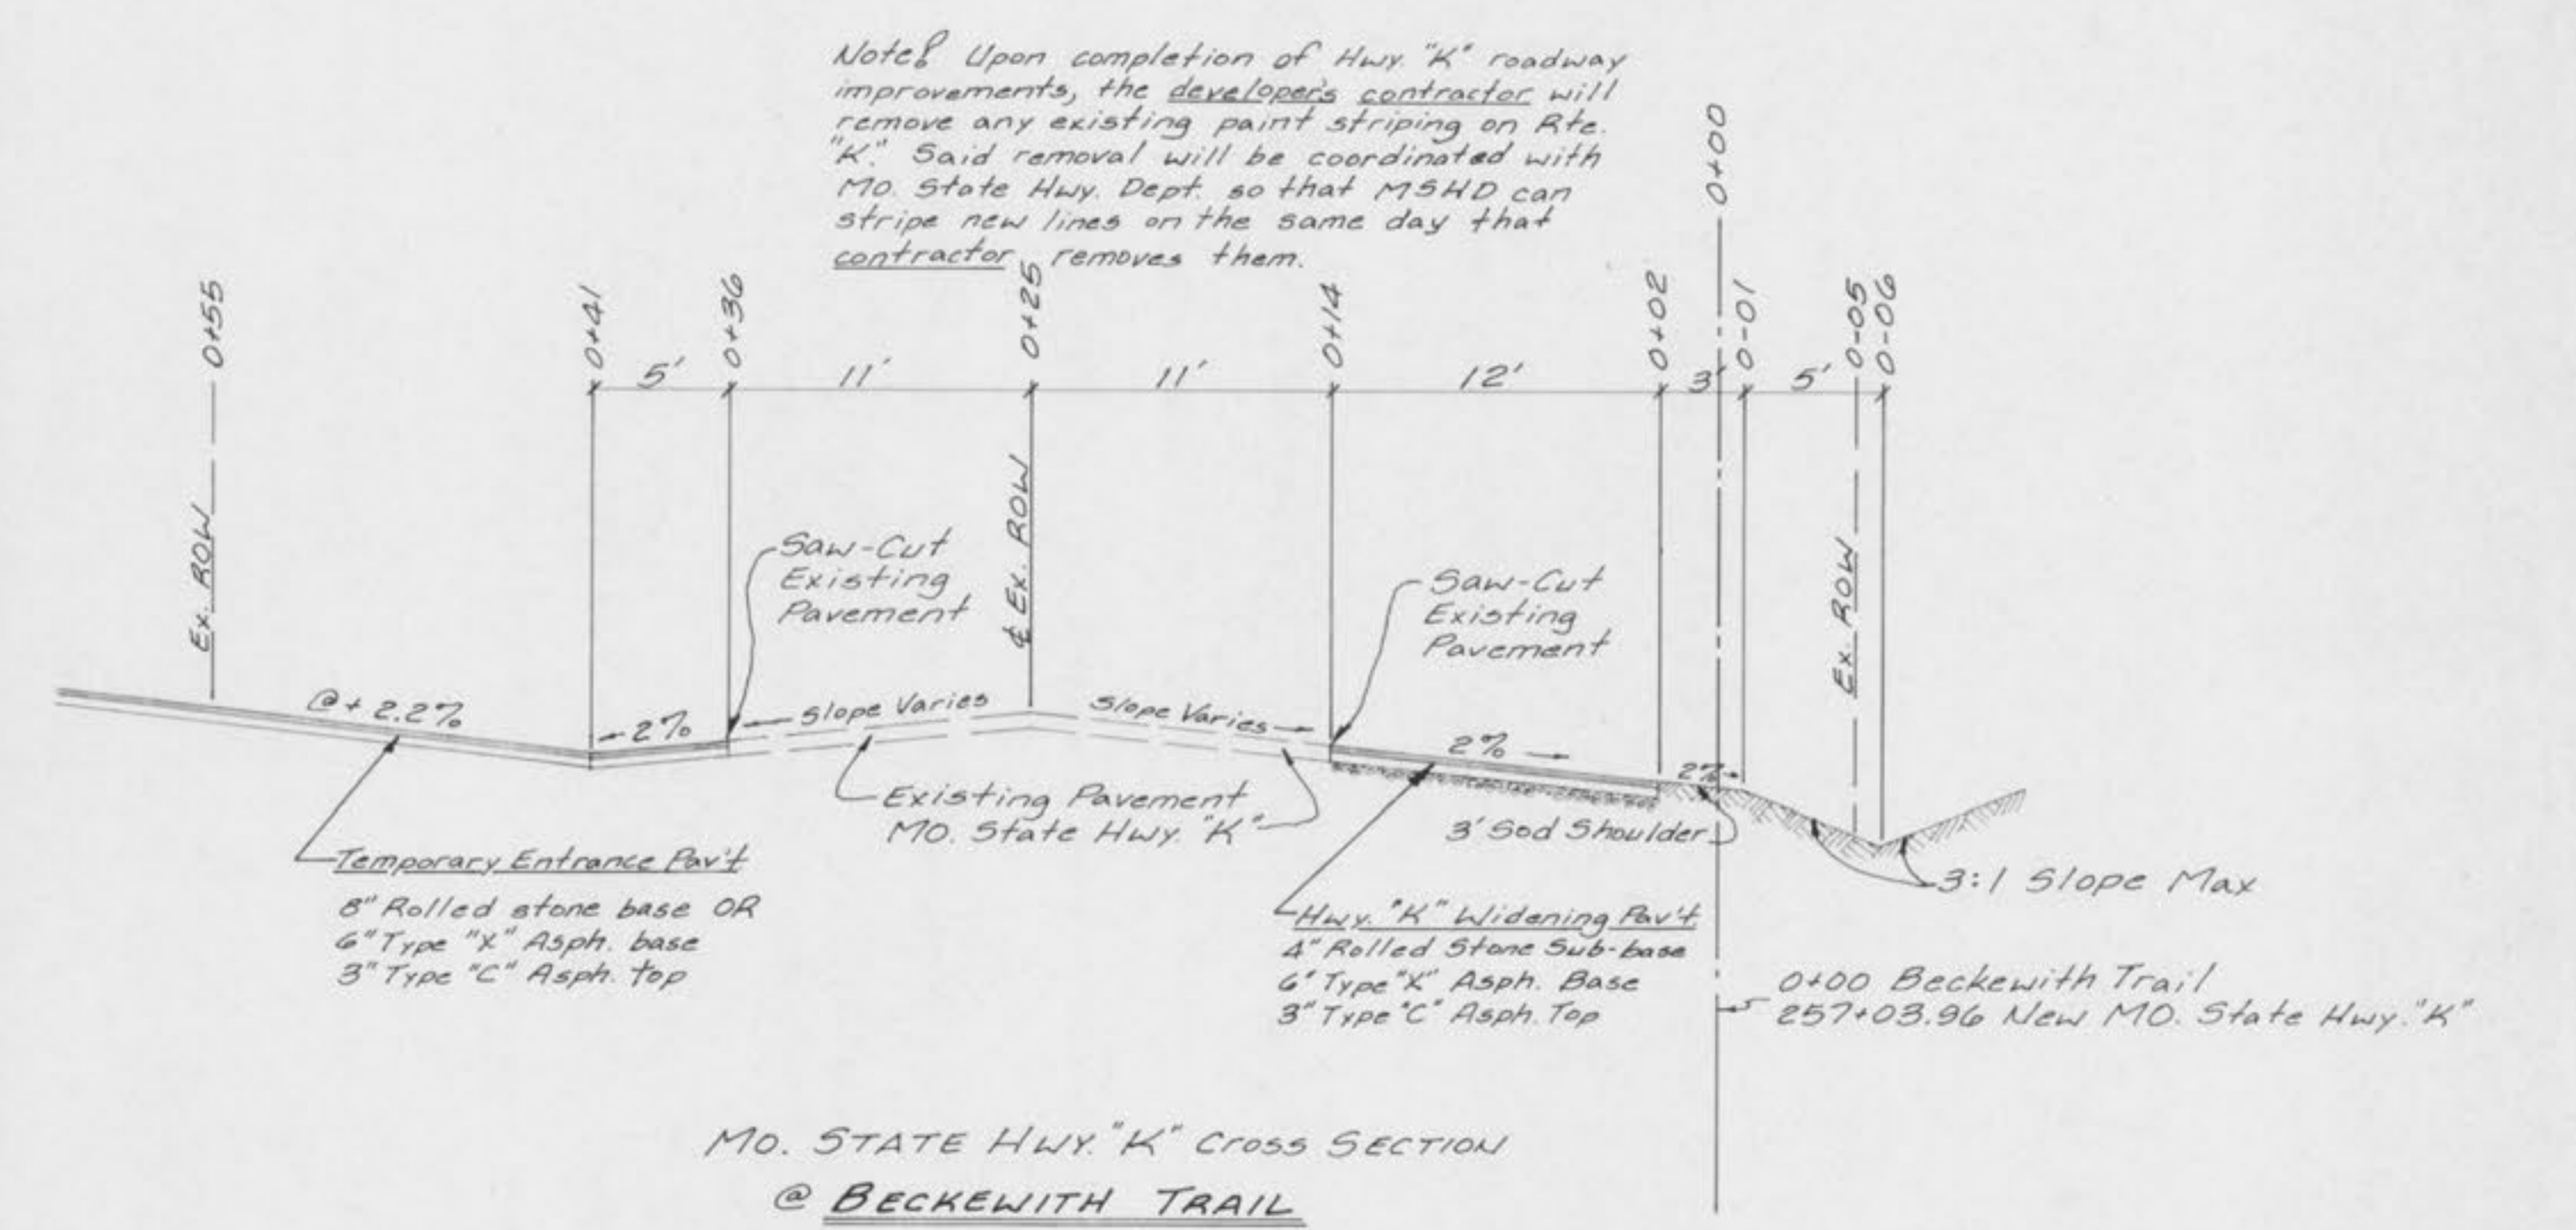 Note! Upon completion of Hwy. "K" roadway
improvements, the developer's contractor will
remove any existing paint striping on Rte.
"K." Said removal will be coordinated with
Mo. State Hwy. Dept. so that MSHD can
stripe new lines on the same day that
contractor removes them.
0+55
0+41
0+36
0+25
0+14
0+02
0+00
0-01
0-05
0-06
5'
11'
11'
12'
3'
5'
Ex. ROW
℄ Ex. ROW
Ex. ROW
Saw-Cut
Existing
Pavement
Saw-Cut
Existing
Pavement
@+ 2.2%
2%
Slope Varies
Slope Varies
2%
2%
Existing Pavement
MO. State Hwy. "K"
3' Sod Shoulder
3:1 Slope Max
Temporary Entrance Pav't
8" Rolled stone base OR
6" Type "X" Asph. base
3" Type "C" Asph. top
Hwy. "K" Widening Pav't.
4" Rolled Stone Sub-base
6" Type "X" Asph. Base
3" Type "C" Asph. Top
0+00 Beckewith Trail
257+03.96 New MO. State Hwy. "K"
MO. STATE HWY. "K" Cross SECTION
@ BECKEWITH TRAIL